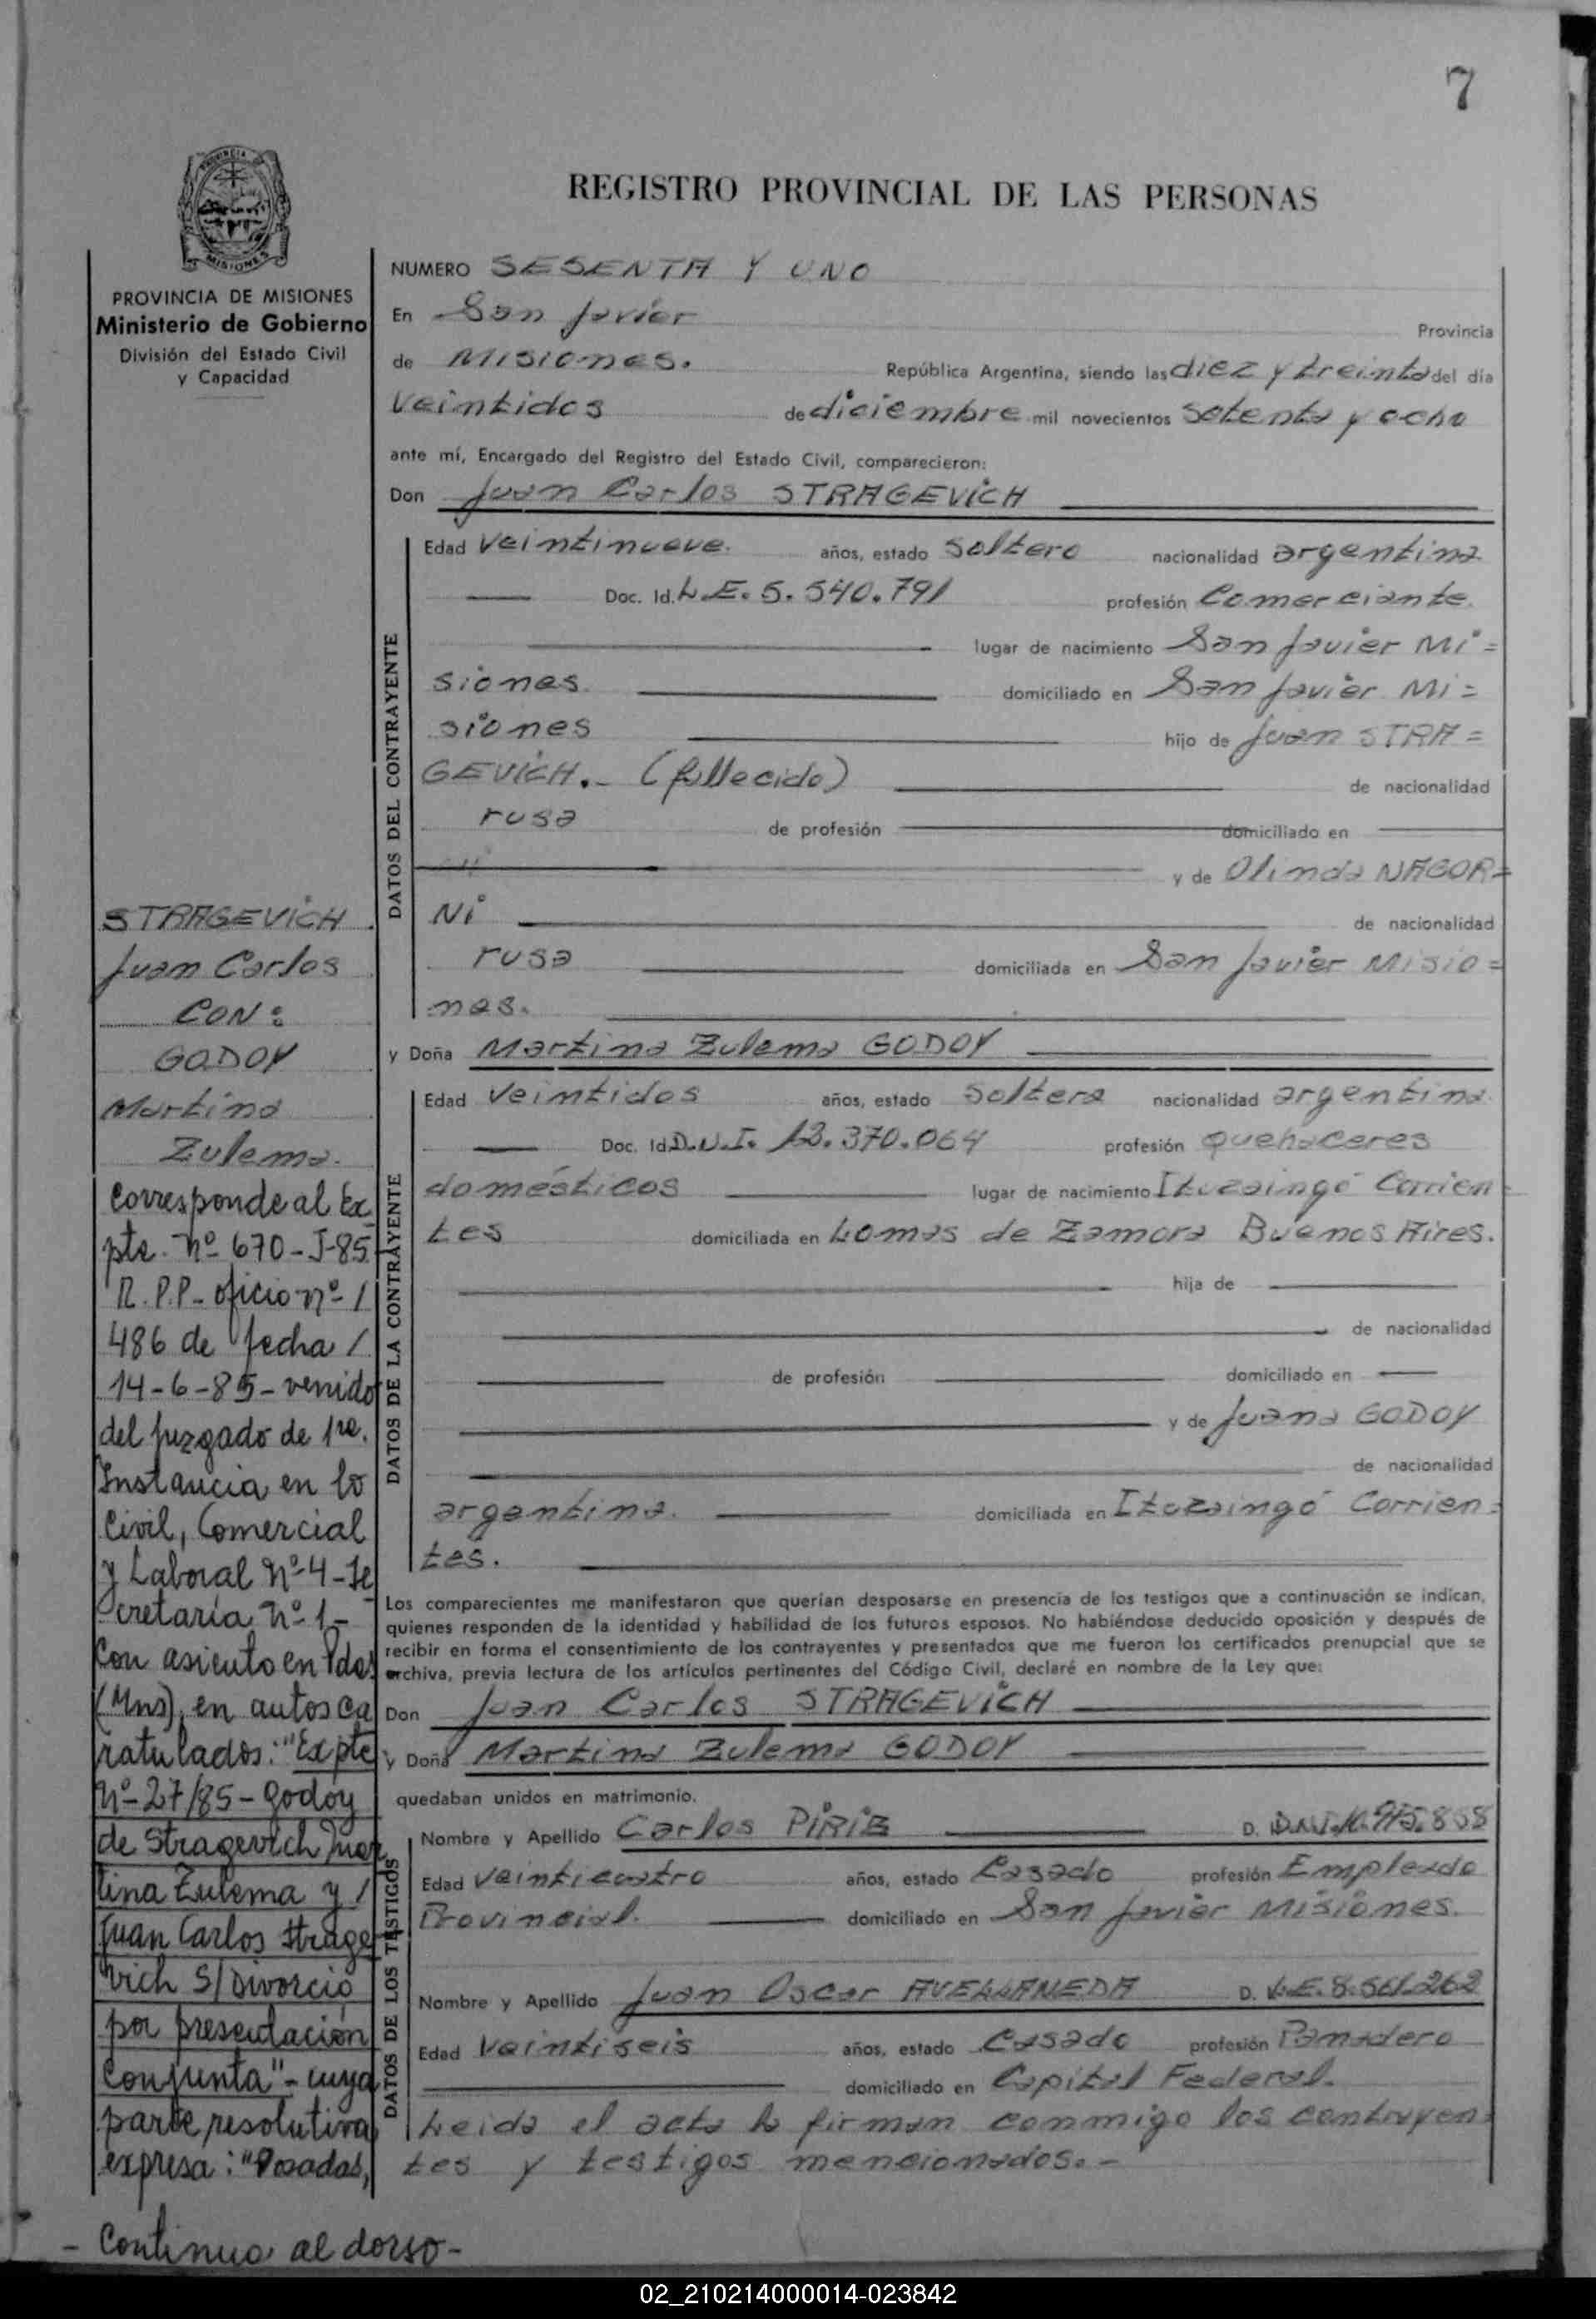 7
PROVINCIA DE MISIONES
REGISTRO PROVINCIAL DE LAS PERSONAS
PROVINCIA DE MISIONES
Ministerio de Gobierno
División del Estado Civil
y Capacidad
NUMERO SESENTA Y UNO
En San Javier Provincia
de Misiones. República Argentina, siendo las diez y treinta del día
veintidos de diciembre mil novecientos setenta y ocho
ante mí, Encargado del Registro del Estado Civil, comparecieron:
Don Juan Carlos STRAGEVICH
DATOS DEL CONTRAYENTE
Edad veintinueve. años, estado soltero nacionalidad argentina
Doc. Id. L.E. 5.540.791 profesión Comerciante.
lugar de nacimiento San Javier Mi=
siones. domiciliado en San Javier Mi=
siones hijo de Juan STRA=
GEVICH.- (fallecido) de nacionalidad
rusa de profesión domiciliado en
y de Olinda NAGOR=
NI de nacionalidad
rusa domiciliada en San Javier Misio=
nes.
y Doña Martina Zulema GODOY
DATOS DE LA CONTRAYENTE
Edad veintidos años, estado soltera nacionalidad argentina.
Doc. Id. D.N.I. 12.370.064 profesión quehaceres
domésticos lugar de nacimiento Ituzaingó Corrien=
tes domiciliada en Lomas de Zamora Buenos Aires.
hija de
de nacionalidad
de profesión domiciliado en
y de Juana GODOY
de nacionalidad
argentina. domiciliada en Ituzaingó Corrien=
tes.
Los comparecientes me manifestaron que querían desposarse en presencia de los testigos que a continuación se indican,
quienes responden de la identidad y habilidad de los futuros esposos. No habiéndose deducido oposición y después de
recibir en forma el consentimiento de los contrayentes y presentados que me fueron los certificados prenupcial que se
archiva, previa lectura de los artículos pertinentes del Código Civil, declaré en nombre de la Ley que:
Don Juan Carlos STRAGEVICH
y Doña Martina Zulema GODOY
quedaban unidos en matrimonio.
DATOS DE LOS TESTIGOS
Nombre y Apellido Carlos PIRIZ D. D.N.I.
Edad veinticuatro años, estado Casado profesión Empleado
Provincial. domiciliado en San Javier Misiones.
Nombre y Apellido Juan Oscar AVELLANEDA D. L.E. 8.561.262
Edad veintiseis años, estado Casado profesión Panadero
domiciliado en Capital Federal.
Leida el acta la firman conmigo los contrayen=
tes y testigos mencionados.-
STRAGEVICH
Juan Carlos
CON:
GODOY
Martina
Zulema.
Corresponde al Ex
pte. nº 670-J-85
R.P.P- oficio nº /
486 de fecha /
14-6-85- venido
del juzgado de 1ra.
Instancia en lo
Civil, Comercial
y Laboral nº 4-Se
cretaría nº 1-
con asiento en Pdas
(Mns), en autos ca
ratulados: "Expte
nº 27/85- Godoy
de Stragevich Mar
tina Zulema y /
Juan Carlos Strage
vich S/ Divorcio
por presentación
conjunta"- cuya
parte resolutiva
expresa: "Posadas,
- Continua al dorso -
02_210214000014-023842